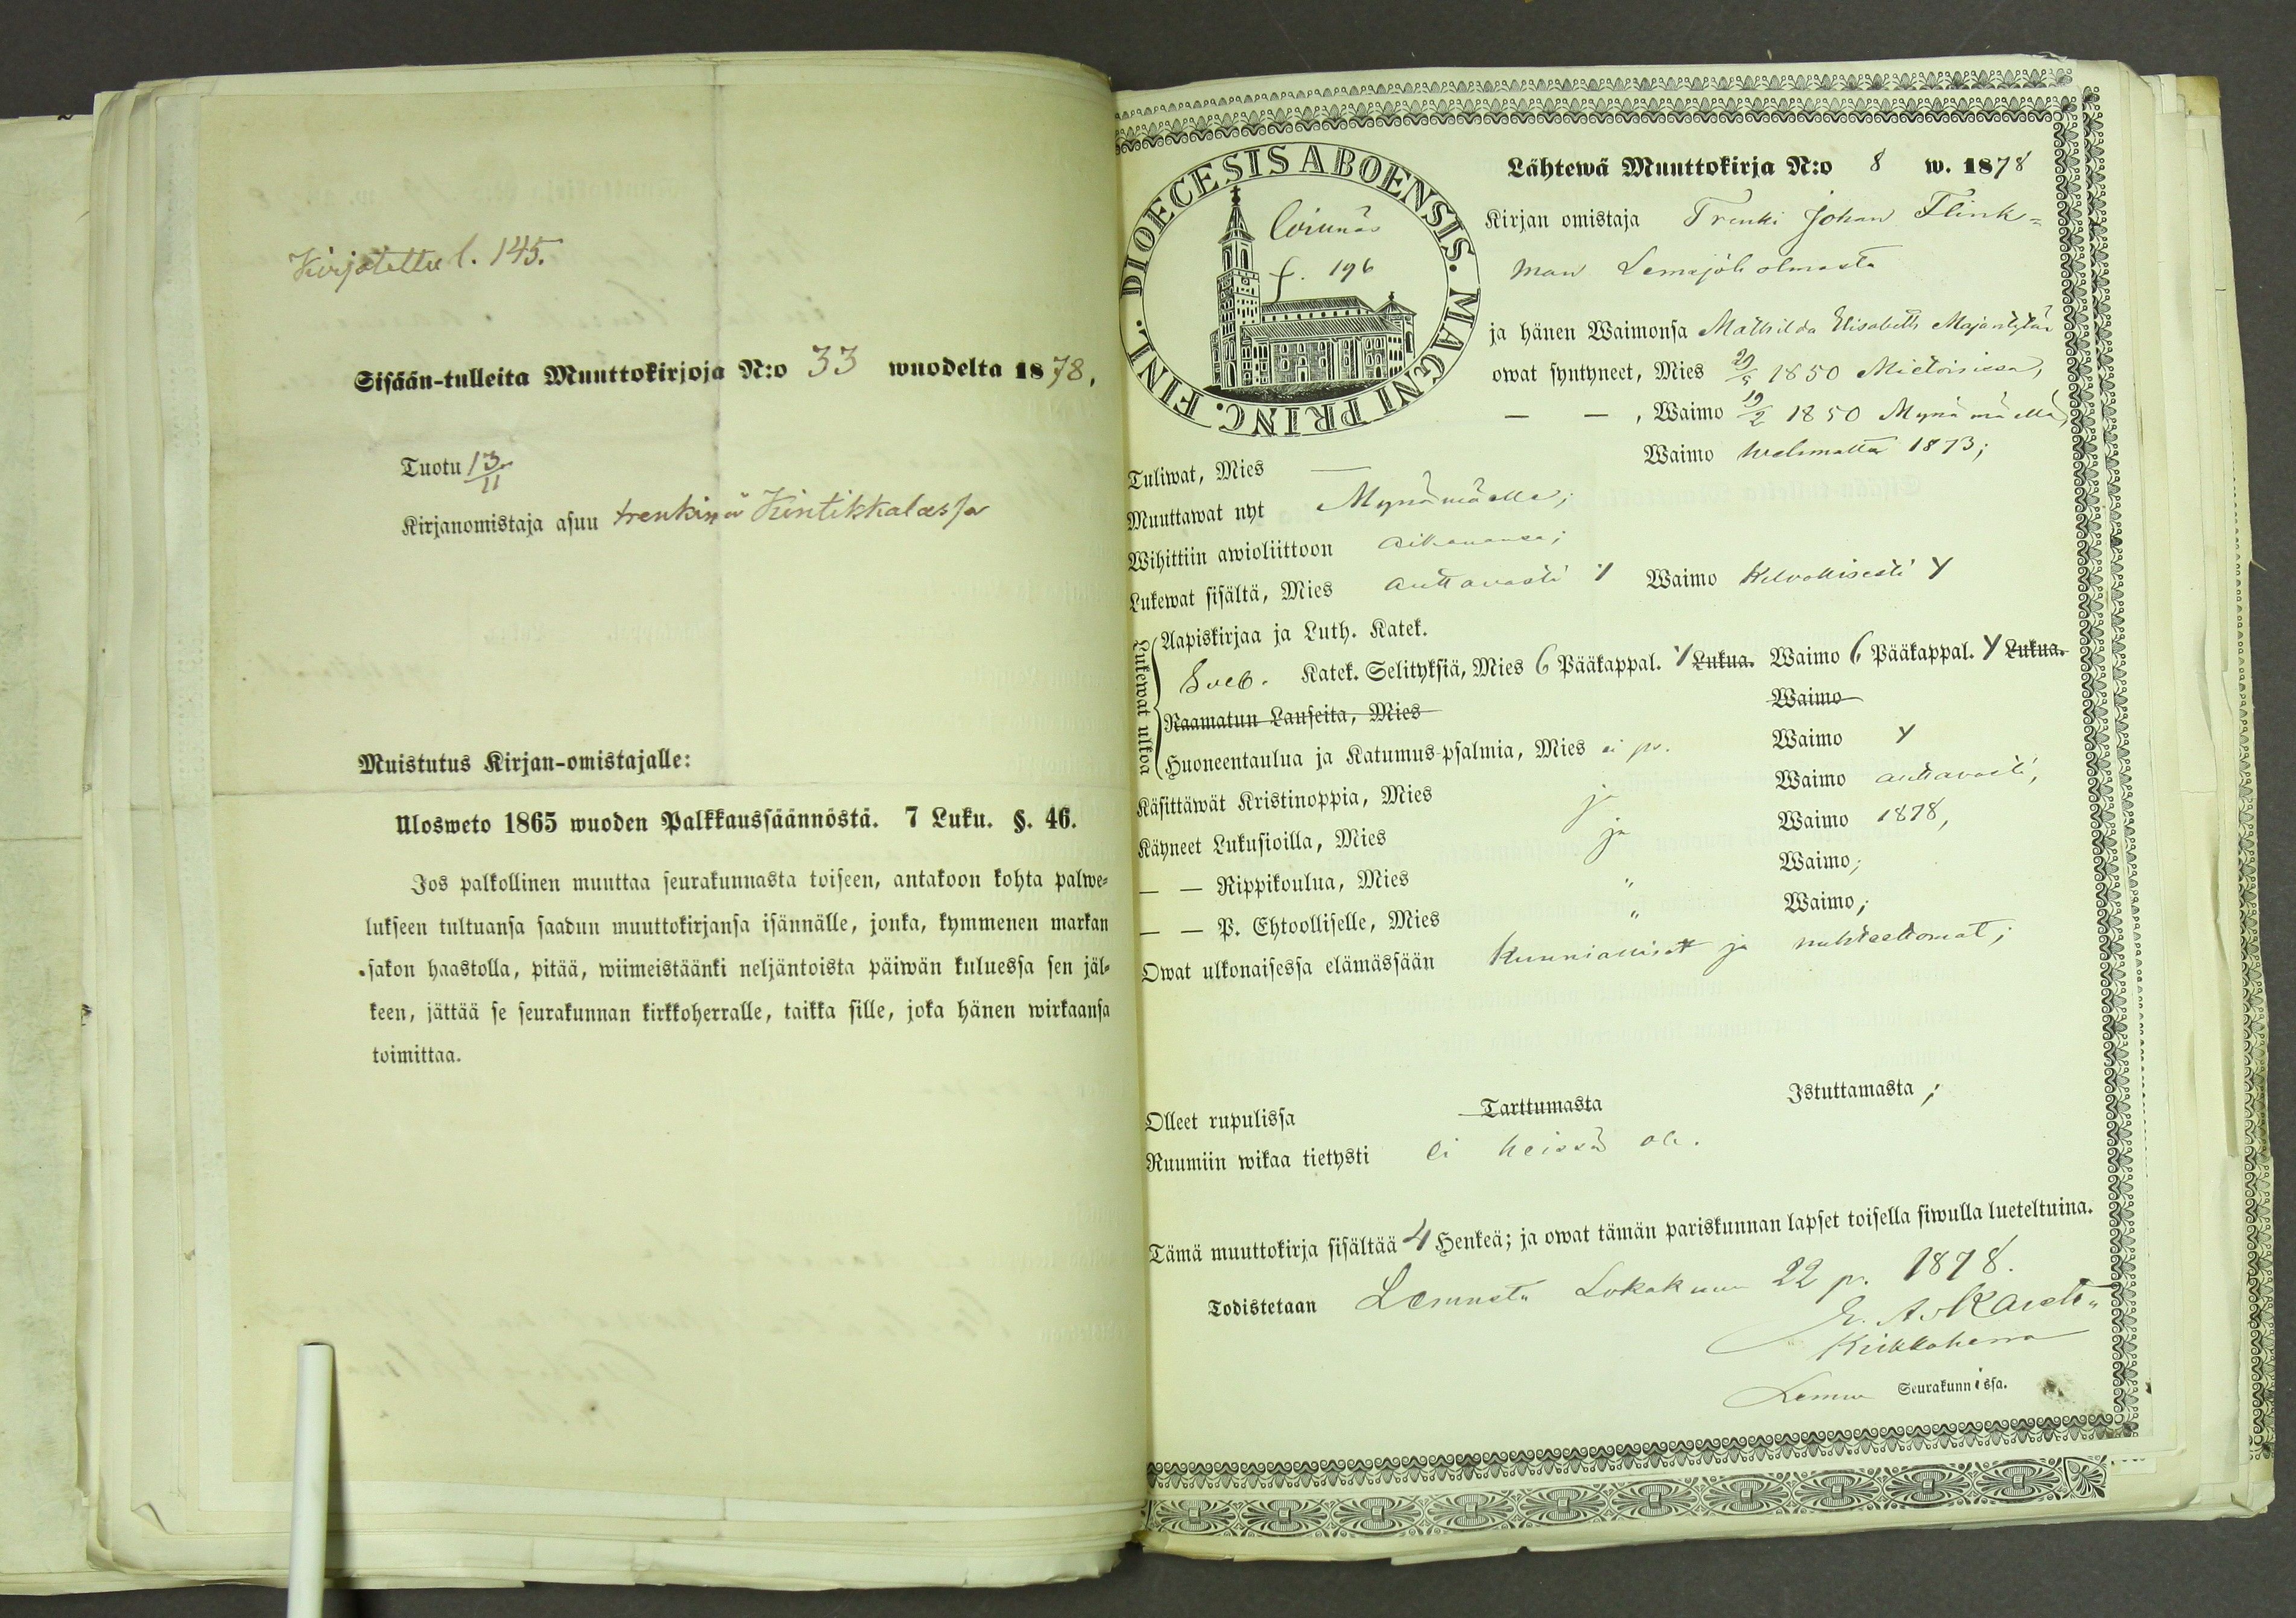 Kirjotettu l. 145.
Sisään-tulleita Muuttokirjoja N:o 33 wuodelta 1878.
Tuotu 13/11
Kirjanomistaja asuu trenkinä Kintikkalassa
Muistutus Kirjan-omistajalle:
Ulosweto 1865 wuoden Palkkaussäännöstä. 7 Luku. §. 46.
Jos palkollinen muuttaa seurakunnasta toiseen, antakoon kohta palwe-
lukseen tultuansa saadun muuttokirjansa isännälle, jonka, kymmenen markan
sakon haastolla, pitää, wiimeistäänki neljäntoista päiwän kuluessa sen jäl-
keen, jättää se seurakunnan kirkkoherralle, taikka sille, joka hänen wirkaansa
toimittaa.
DIOECESIS ABOENSIS. MAGNI PRINC. FINL.
f. 196
Lähtewä Muuttokirja N:o 8 w. 1878
Kirjan omistaja Trenki Johan Flink=
man
ja hänen Waimonsa Mathilda Elisabeth Majantytär
owat syntyneet, Mies 29/5 1850 Mietoisissa,
— — , Waimo 19/2 1850 Mynämäellä,
Tuliwat, Mies — Waimo Wehmalta 1873;
Muuttawat nyt Mynämäelle;
Wihittiin awioliittoon aikanansa;
Lukewat sisältä, Mies auttavasti Y Waimo Kelvollisesti Y
Lukewat ulkoa
Aapiskirjaa ja Luth. Katek.
Sveb. Katek. Selityksiä, Mies 6 Pääkappal. Y Lukua. Waimo 6 Pääkappal. Y Lukua.
Raamatun Lauseita, Mies Waimo
Huoneentaulua ja Katumus-psalmia, Mies ei Waimo Y
Käsittäwät Kristinoppia, Mies Waimo auttavasti,
Käyneet Lukusioilla, Mies ja Waimo 1878,
— — Rippikoulua, Mies ja Waimo;
— — P. Ehtoolliselle, Mies " Waimo;
Owat ulkonaisessa elämässään Kunnialliset ja nuhteettomat;
Olleet rupulissa Tarttumasta Istuttamasta;
Ruumiin wikaa tietysti ei heissä ole.
Tämä muuttokirja sisältää 4 Henkeä; ja owat tämän pariskunnan lapset toisella siwulla lueteltuina.
Todistetaan Lemusta Lokakuun 22 p. 1878.
Kirkkoherra
Lemun Seurakunnissa.